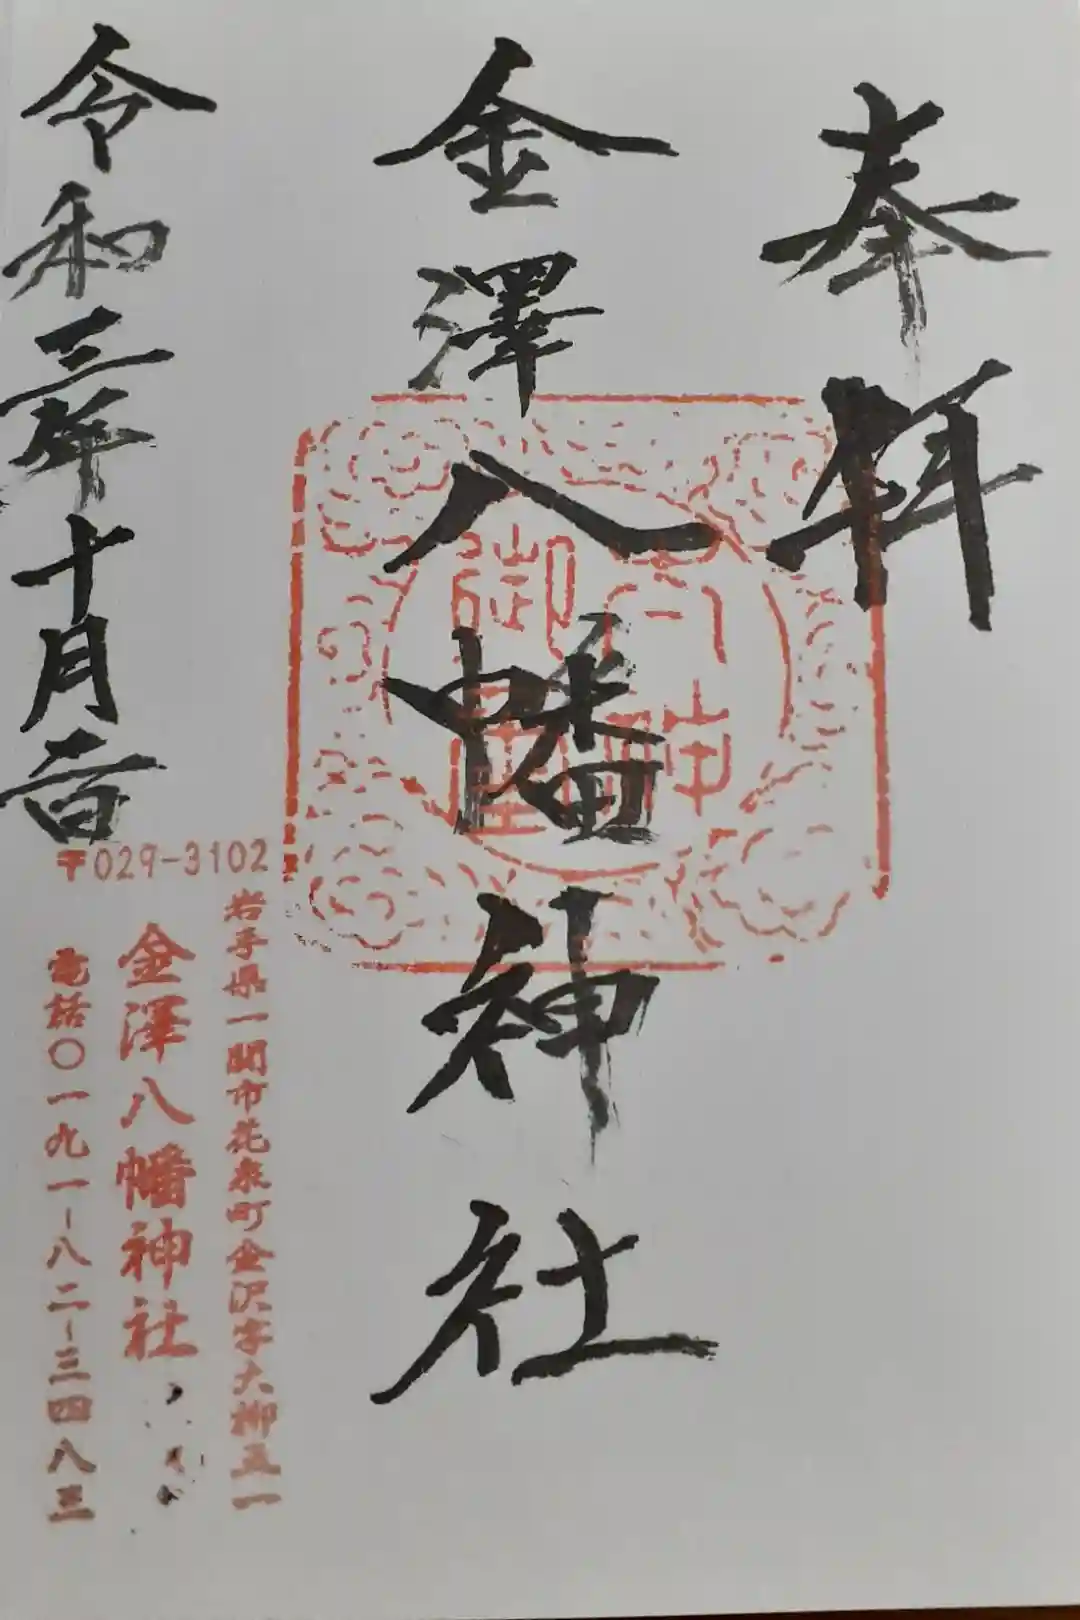 奉拝
金澤八幡神社
令和三年十月二日
〒029-3102
岩手県一関市花泉町金沢字大柳五一
金澤八幡神社
電話〇一九一-八二-三四八三